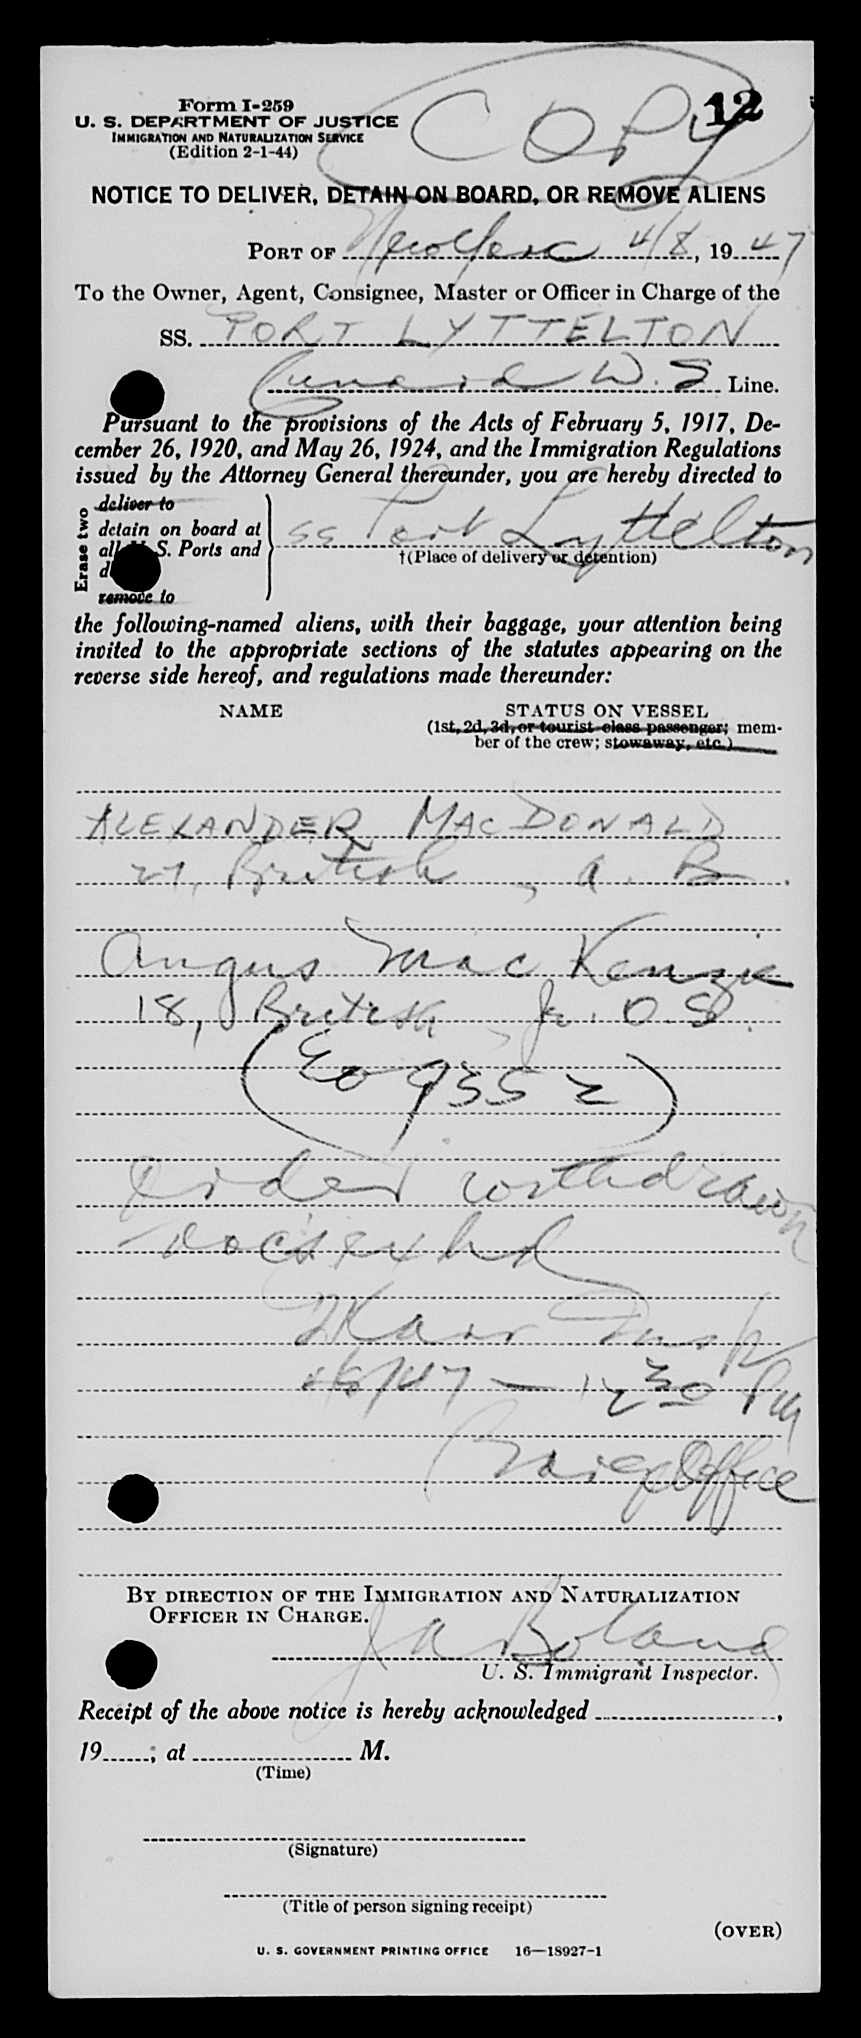 COPY
12
Form I-259
U. S. DEPARTMENT OF JUSTICE
IMMIGRATION AND NATURALIZATION SERVICE
(Edition 2-1-44)
NOTICE TO DELIVER, DETAIN ON BOARD, OR REMOVE ALIENS
PORT OF New York 4/8, 1947
To the Owner, Agent, Consignee, Master or Officer in Charge of the
SS. PORT LYTTELTON
Cunard W.S Line.
Pursuant to the provisions of the Acts of February 5, 1917, De-
cember 26, 1920, and May 26, 1924, and the Immigration Regulations
issued by the Attorney General thereunder, you are hereby directed to
Erase two
deliver to
detain on board at
all U. S. Ports and
remove to
SS Port Lyttelton
†(Place of delivery or detention)
the following-named aliens, with their baggage, your attention being
invited to the appropriate sections of the statutes appearing on the
reverse side hereof, and regulations made thereunder:
NAME STATUS ON VESSEL
(1st, 2d, 3d, or tourist class passenger; mem-
ber of the crew; stowaway, etc.)
ALEXANDER MACDONALD
27, British, A. B.
Angus MacKenzie
18, British, Jr. O.S.
(EO 9352)
Order withdrawn
Docs exhd
Insp
4/8/47 — 12 30 PM
Barge Office
BY DIRECTION OF THE IMMIGRATION AND NATURALIZATION
OFFICER IN CHARGE.
J A Boland
U. S. Immigrant Inspector.
Receipt of the above notice is hereby acknowledged ,
19 ; at M.
(Time)
(Signature)
(Title of person signing receipt)
(OVER)
U. S. GOVERNMENT PRINTING OFFICE 16—18927-1